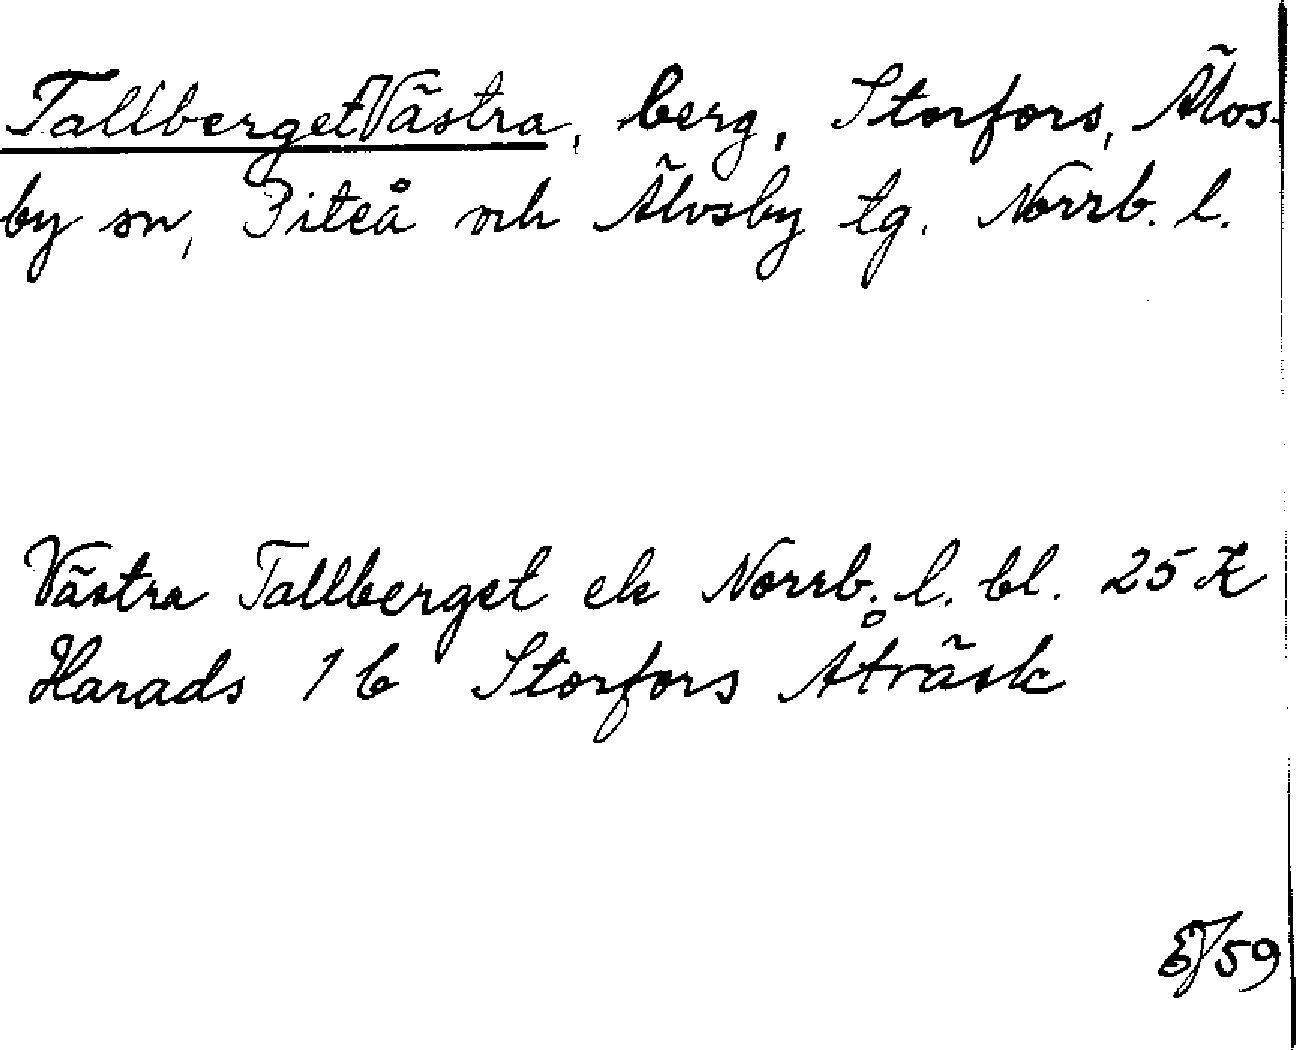 Tallberget Västra, berg, Storfors, Älvs-
by sn, Piteå och Älvsby tg. Norrb. l.
Västra Tallberget ek Norrb. l. bl. 25 K
Harads 1 b Storfors Åträsk
EJ/59